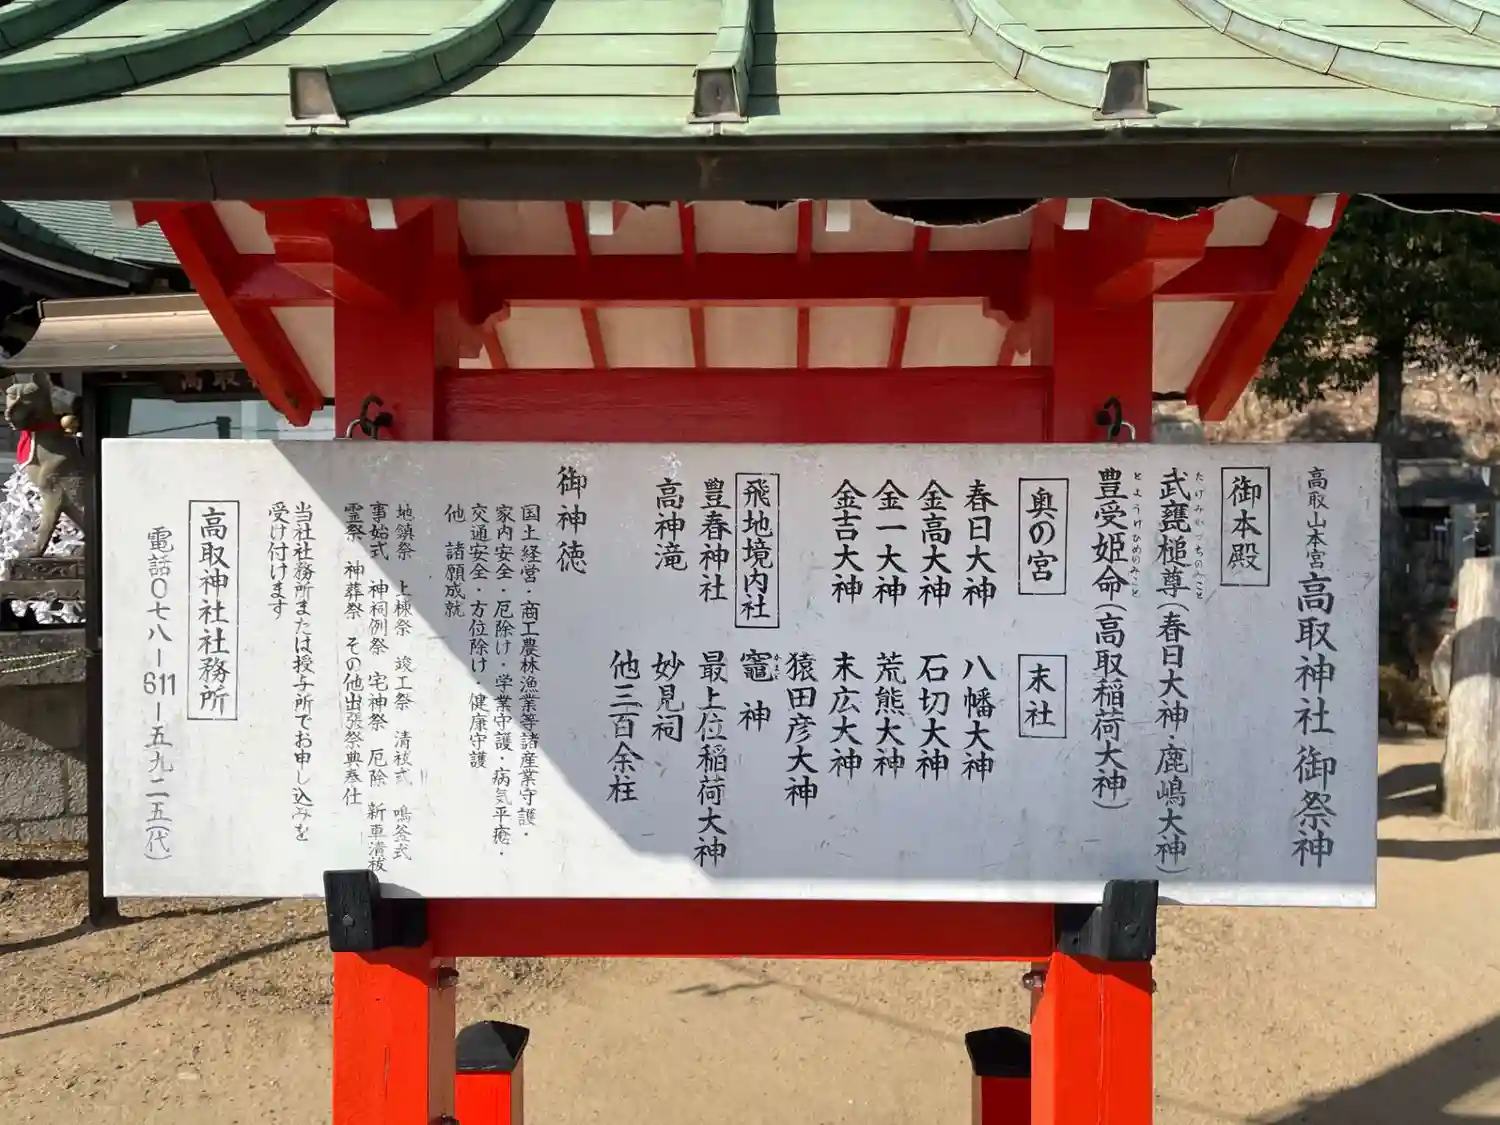 高取山本宮 高取神社 御祭神
御本殿
武甕槌尊(春日大神・鹿嶋大神)
たけみかづちのみこと
豊受姫命(高取稲荷大神)
とようけひめのみこと
奥の宮
春日大神
金高大神
金一大神
金吉大神
末社
八幡大神
石切大神
荒熊大神
末広大神
猿田彦大神
竈神
かまど
飛地境内社
豊春神社
高神滝
最上位稲荷大神
妙見祠
他三百余柱
御神徳
国土経営・商工農林漁業等諸産業守護・
家内安全・厄除け・学業守護・病気平癒・
交通安全・方位除け・健康守護
他 諸願成就
地鎮祭 上棟祭 竣工祭 清祓式 鳴釜式
事始式 神祠例祭 宅神祭 厄除 新車清祓
霊祭 神葬祭 その他出張祭典奉仕
当社社務所または授与所でお申し込みを
受け付けます
高取神社社務所
電話〇七八ー611ー五九二五(代)